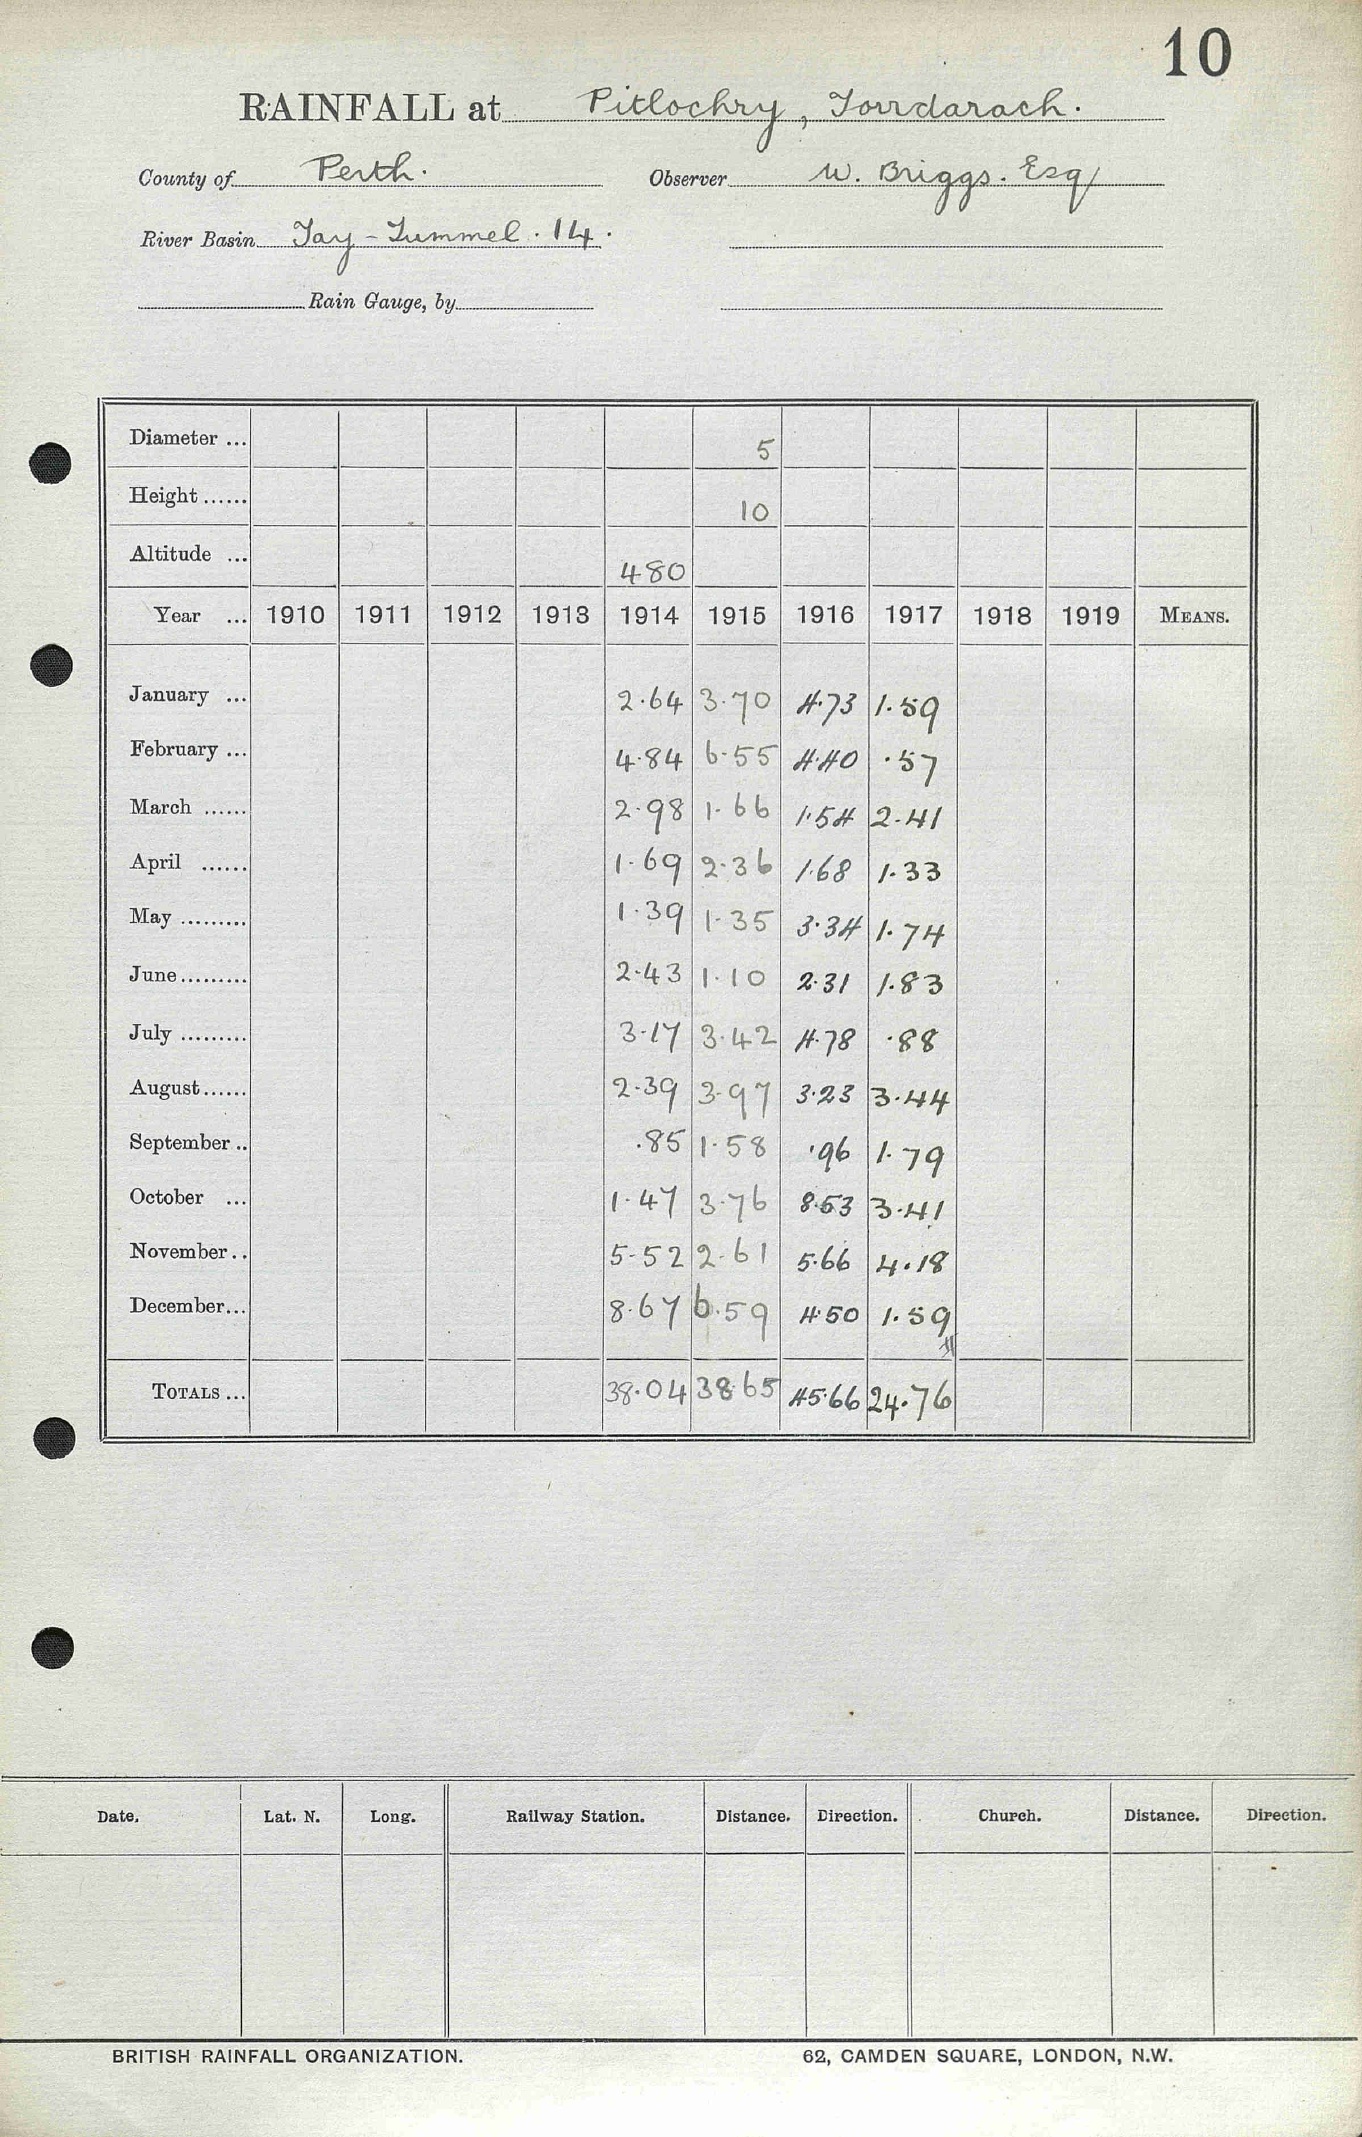 10
RAINFALL at Pitlochry, Torrdarach.
County of Perth. Observer W. Briggs. Esq
River Basin Tay - Tummel. 14.
Rain Gauge, by
Diameter ... 5
Height ...... 10
Altitude ... 480
Year ... 1910 1911 1912 1913 1914 1915 1916 1917 1918 1919 MEANS.
January ... 2.64 3.70 4.73 1.59
February ... 4.84 6.55 4.40 .57
March ...... 2.98 1.66 1.54 2.41
April ...... 1.69 2.36 1.68 1.33
May ......... 1.39 1.35 3.34 1.74
June ......... 2.43 1.10 2.31 1.83
July ......... 3.17 3.42 4.78 .88
August ...... 2.39 3.97 3.23 3.44
September .. .85 1.58 .96 1.79
October ... 1.47 3.76 8.53 3.41
November .. 5.52 2.61 5.66 4.18
December ... 8.67 6.59 4.50 1.59
TOTALS ... 38.04 38.65 45.66 24.76
Date. Lat. N. Long. Railway Station. Distance. Direction. Church. Distance. Direction.
BRITISH RAINFALL ORGANIZATION. 62, CAMDEN SQUARE, LONDON, N.W.